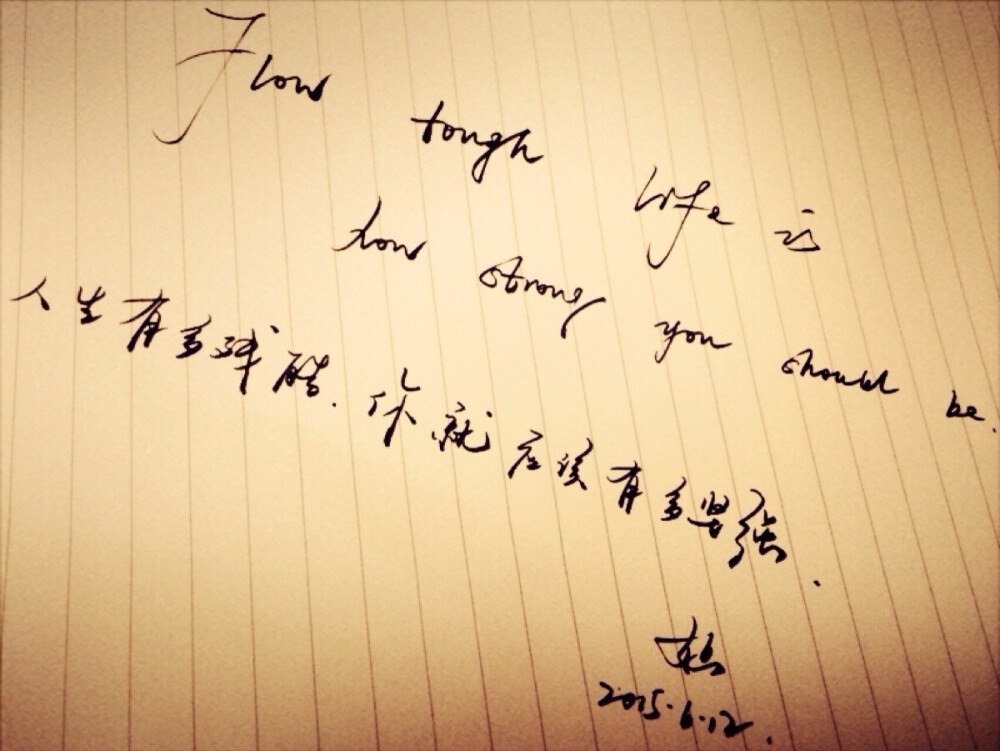 How tough life is
how strong you should be.
人生有多残酷.你就应该有多坚强.
2015.6.12.